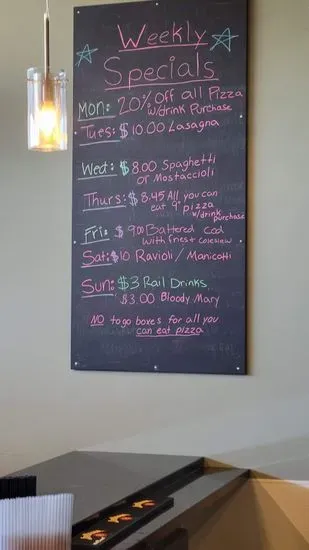 Weekly
Specials
Mon: 20% Off all Pizza
w/drink Purchase
Tues: $10.00 Lasagna
Wed: $8.00 Spaghetti
or Mostaccioli
Thurs: $8.45 All you can
eat 9" pizza
w/drink
purchase
Fri: $9.00 Battered Cod
with fries + coleslaw
Sat: $10 Ravioli / Manicotti
Sun: $3 Rail Drinks
$3.00 Bloody Mary
NO togo boxes for all you
can eat pizza